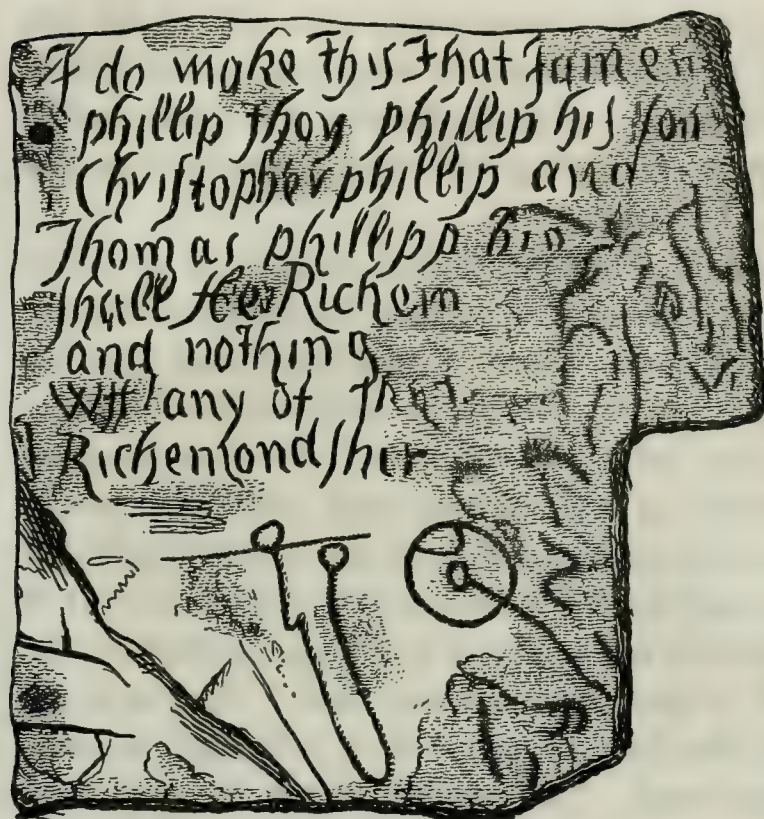 I do make This That James
phillip Jhon phillip his son
Christopher phillip and
Thomas phillipp his
shall fle Richem
and nothing
Wtt any of them
Richemondsher